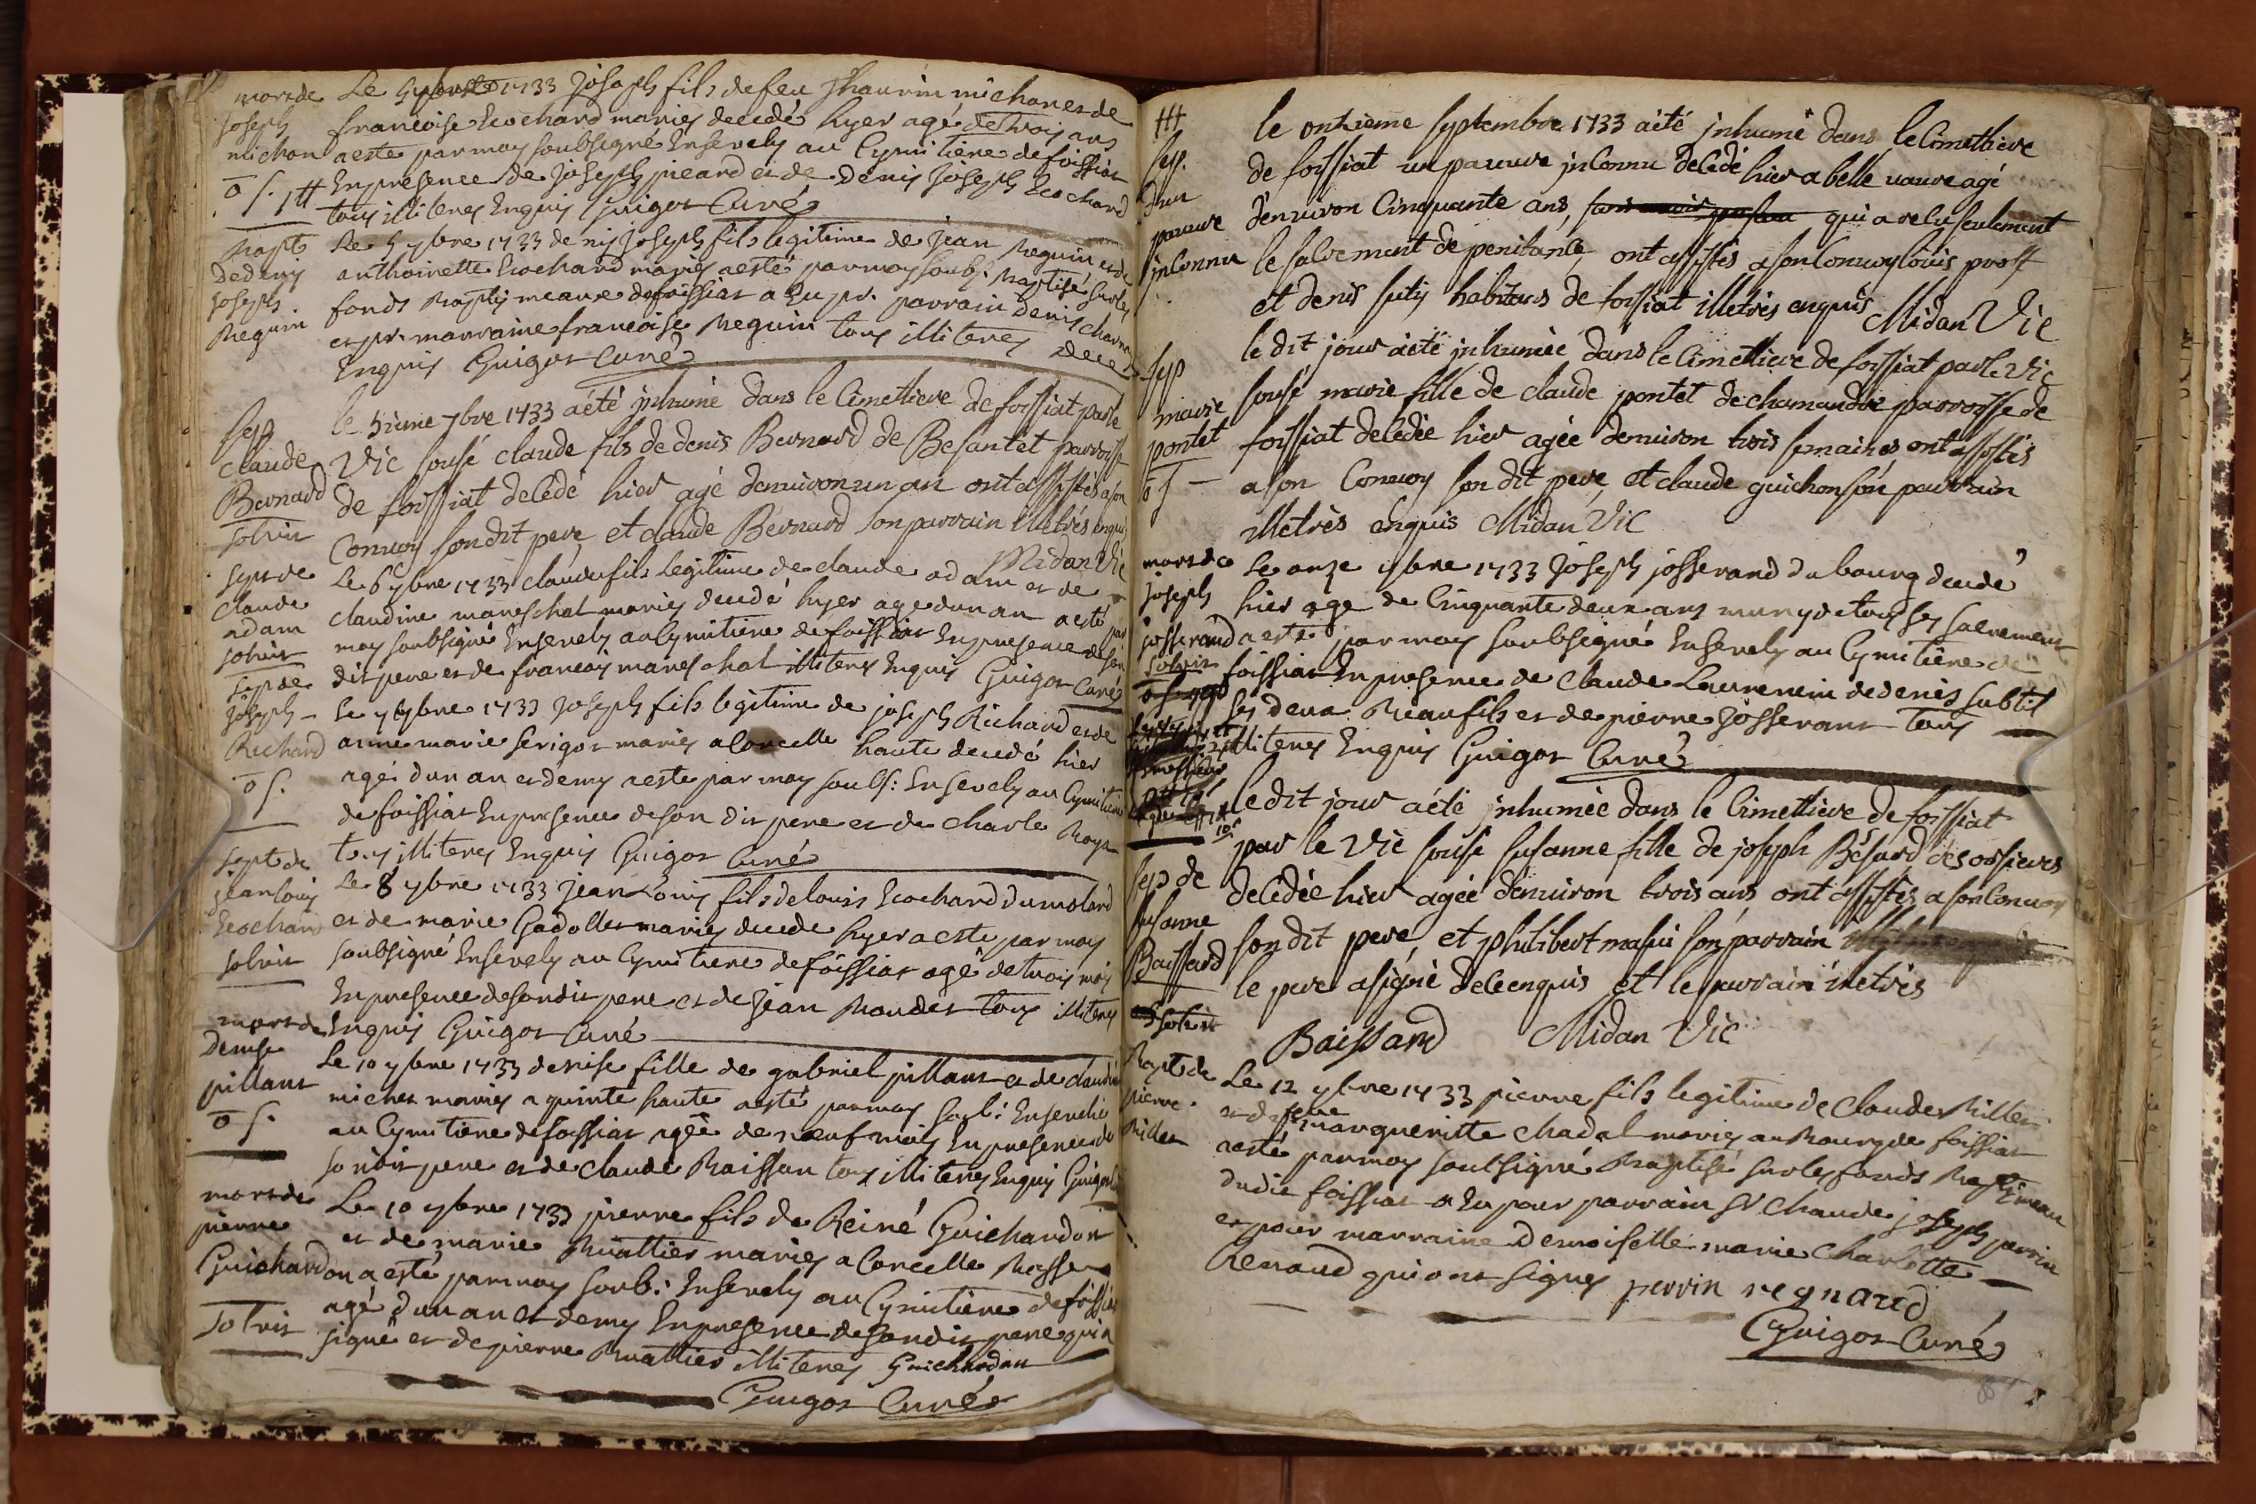 mort de
joseph
michon
Le 5 ybre 1733 Joseph fils de feu Thaurin michon et de
francoise Ecochard mariez decedé hyer agé de trois ans
a esté par moy soubsigné Ensevely au Cymitiere de foissiat
En presence de Joseph picard et de Denis Joseph Ecochard
tous illiterez Enquis Guigot Curé
Bapt
de denis
Joseph
Beguin
Le 5 ybre 1733 denis Joseph fils legitime de Jean Beguin et de
anthoinette Ecochard mariez a esté par moy soubs. Baptisé sur les
fonds Baptismeaux de foissiat a Eu pr. parrain Denis
et pr. marraine francoise Beguin tous illiterez de ce
Enquis Guigot Curé
Sep
Claude
Bernard
solvit
le 5ieme 7bre 1733 a été inhumé dans le Cimettiere de foissiat par le
Vic sousé claude fils de denis Bernard de Besantet parroisse
de foissiat decedé hier agé denviron un an ont assistés a son
Convoy son dit pere, et claude Bernard son parrain illetrés enquis
Midan Vic
Sept de
Claude
adam
solvit
Le 6 ybre 1733 claude fils Legitime de claude adam et de
claudine mareschal mariez decedé hyer age dun an a esté par
moy soubsigné Ensevely au Cymitiere de foissiat En presence de son
dit pere et de francois mareschal illiterez Enquis Guigot Curé
Sept de
Joseph
Richard
o s.
Le 7 ybre 1733 Joseph fils legitime de joseph Richard et de
anne marie Serigot mariez a Corcelle haute decedé hier
agé dun an et demy a esté par moy soubs: Ensevely au Cymitiere
de foissiat En presence de son dit pere et de charle Roys
tous illiterez Enquis Guigot Curé
Sept de
jean louis
Ecochard
solvit
Le 8 ybre 1733 jean Louis fils de louis Ecochard du molard
et de marie Gadollet mariez decede hyer a esté par moy
soubsigné Ensevely au Cymitiere de foissiat agé de trois mois
En presence de son dit pere et de Jean Baudet tous illiterez
Enquis Guigot Curé
mort de
Denise
pillant
o s.
Le 10 ybre 1733 denise fille de gabriel pillant et de claudine
michet mariez a quinte haute a esté par moy soub: Ensevelie
au Cymitiere de foissiat agée de neuf mois En presence de
son dit pere et de claude Baissan tous illiterez Enquis Guigot
mort de
pierre
Guichardon
solvit
Le 10 ybre 1733 pierre fils de Reiné Guichardon
et de marie Buattier mariez a Corcelle Basse
a esté par moy soub: Ensevely au Cymitiere de foissiat
agé dun an et demy En presence de son dit pere qui a
signé et de pierre Buattier illiterez Guichardon
Guigot Curé
Sep.
dun
pauvre
inconnu
le onzieme septembre 1733 a été inhumé dans le Cimettiere
de foissiat un pauvre inconnu decedé hier a belle vavre agé
denviron Cinquante ans qui a reçu seulement
le sacrement de penitance ont assistés a son Convoy louis prost
et denis sutij habitans de foissiat illetrés enquis Midan Vic
Sep
marie
pontet
o s
le dit jour a été inhumée dans le Cimettiere de foissiat par le Vic
sousé marie fille de claude pontet de chamandre parroisse de
foissiat decedée hier agée denviron trois semaines ont assistés
a son Convoy son dit pere, et claude guichon son parrain
illetrés enquis Midan Vic
mort de
joseph
josserand
solvit
Le onze ybre 1733 Joseph josserand du bourg decedé
hier age de Cinquante deux ans muny de tous ses sacrements
a esté par moy soubsigné Ensevely au Cymitiere de
foissiat En presence de Claude Laurencin de denis subtil
ses deux Beaufils et de pierre Josserant tous
illiterez Enquis Guigot Curé
Sep de
susanne
Baissard
solvit
le dit jour a été inhumée dans le Cimettiere de foissiat
par le Vic sousé susanne fille de joseph Bésard des orsieres
decedée hier agée denviron trois ans ont assistés a son Convoy
son dit pere, et philibert masui son parrain
le pere a signé de ce enquis et le parrain iletrés
Baissard Midan Vic
Bapt de
pierre
Billet
Le 12 ybre 1733 pierre fils legitime de Claude Billet
et de feue margueritte Chadal mariez au Bourg de foissiat
a esté par moy soubsigné Baptisé sur les fonds Baptismeau
dudit foissiat a Eu pour parrain Sr Claude joseph perrin
et pour marraine Demoiselle marie Charlotte
Renaud qui ont signez perrin regnaud
Guigot Curé